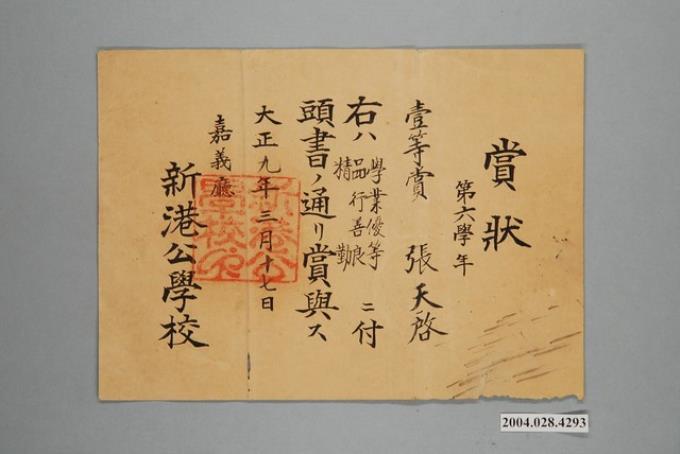 賞狀
第六學年
壹等賞 張天啓
右ハ
學業優等
品行善良
精勤
ニ付
頭書ノ通リ賞與ス
大正九年三月十七日
嘉義廳
新港公學校
新港公
學校之
2004.028.4293